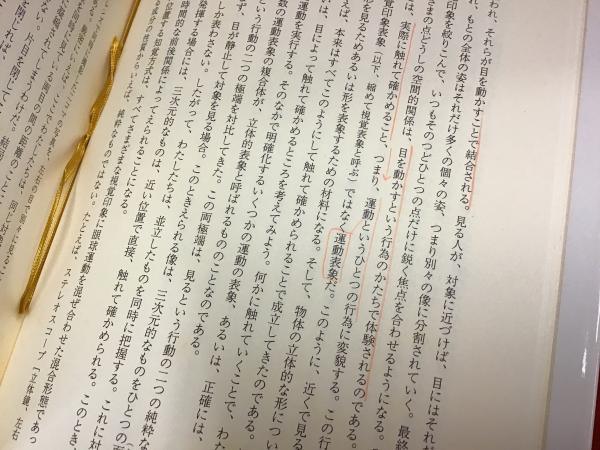 われ、それらが目を動かすことで結合される。見る人が、対象に近づけば、目にはそれだ
れ、もとの全体の姿はそれだけ多くの個々の姿、つまり別々の像に分割されていく。最終
印象を絞りこんで、いつもそのつどひとつの点だけに鋭く焦点を合わせるようになる。
さまの点どうしの空間的関係は、目を動かすという行為のかたちで体験されるのである。
は、実際に触れて確かめること、つまり、運動というひとつの行為に変貌する。この行
覚印象表象（以下、縮めて視覚表象と呼ぶ）ではなく運動表象だ。このように、近くで見る
を見るためあるいは形を表象するための材料になる。そして、物体の立体的な形につい
えば、本来はすべてこのようにして触れて確かめられることで成立してきたのである。
は、目によって触れて確かめるところを考えてみよう。何かに触れていくことで、わた
運動を実行する。そのなかで明確化するいくつかの運動の表象、あるいは、正確には、
数の運動表象の複合体が、立体的表象と呼ばれるもののことなのである。
という行動の二つの極端を対比してきた。この両極端は、見るという行動の二つの純粋な
ず、目が静止して対象を見る場合。このときえられる像は、三次元的なものをひとつの
しか表わさない。したがって、わたしたちは、並立したものを同時に把握する。これに対
発揮する場合には、三次元的なものは、近い位置で直接、触れて確かめられる。このとき、
時間的な前後関係によってえられることになる。
位置する知覚方式は、すべてさまざまな視覚印象に眼球運動を混ぜ合わせた混合形態であっ
る成分の性質からいえば、純粋なものではない。たとえば、ステレオスコープ［立体鏡、左右